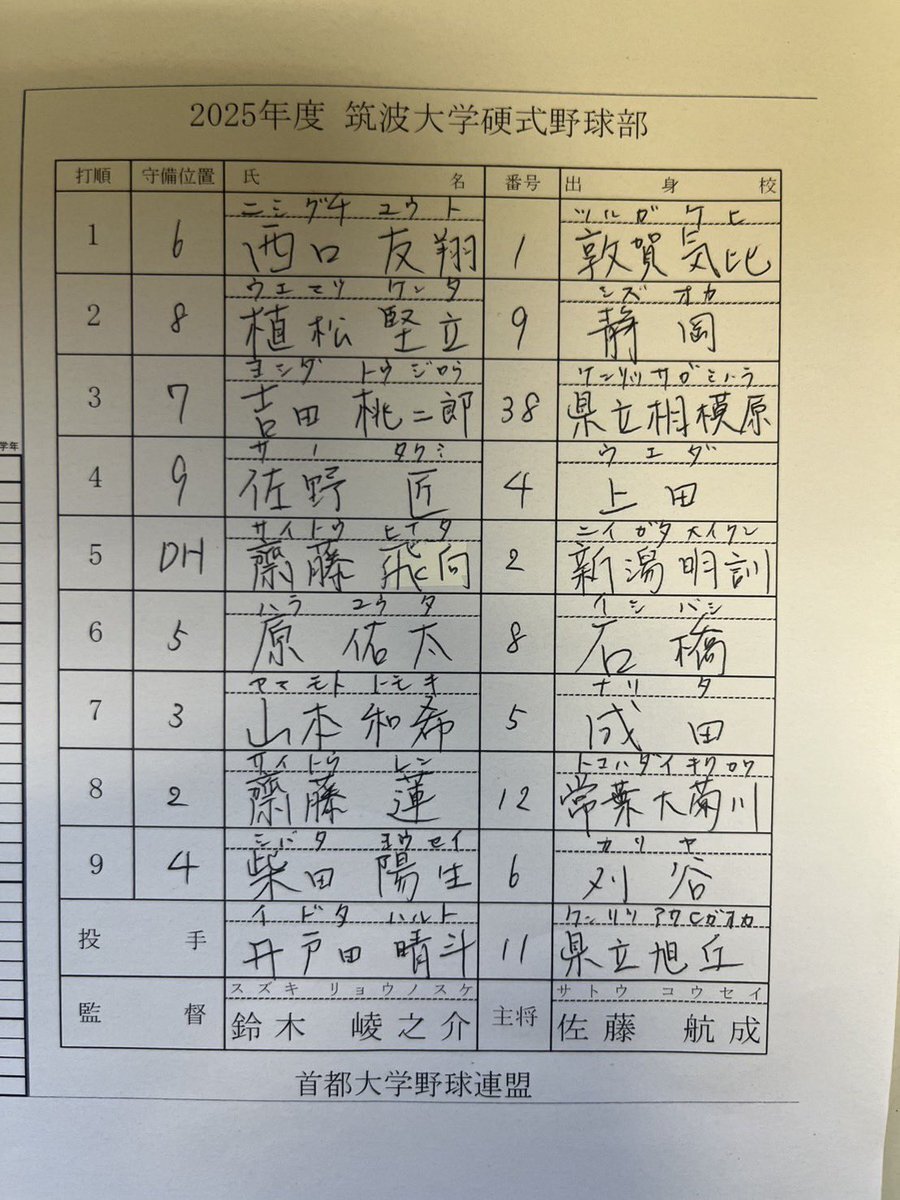 2025年度 筑波大学硬式野球部
打順 守備位置 氏 名 番号 出 身 校
ニシグチ ユウト ツルガ ケヒ
1 6 西口 友翔 1 敦賀気比
ウエマツ ケンタ シズオカ
2 8 植松 堅立 9 静岡
ヨシダ トウジロウ ケンリツサガミハラ
3 7 吉田 桃二郎 38 県立相模原
サノ タクミ ウエダ
4 9 佐野 匠 4 上田
サイトウ ヒナタ ニイガタメイクン
5 DH 齋藤 飛向 2 新潟明訓
ハラ ユウタ イシバシ
6 5 原 佑太 8 石橋
ヤマモト トモキ ナリタ
7 3 山本 和希 5 成田
サイトウ レン トコハダイキクガワ
8 2 齋藤 蓮 12 常葉大菊川
シバタ ヨウセイ カリヤ
9 4 柴田 陽生 6 刈谷
イドタ ハルト ケンリツ アサヒガオカ
投手 井戸田 晴斗 11 県立旭丘
スズキ リョウノスケ サトウ コウセイ
監督 鈴木 崚之介 主将 佐藤 航成
首都大学野球連盟
学年